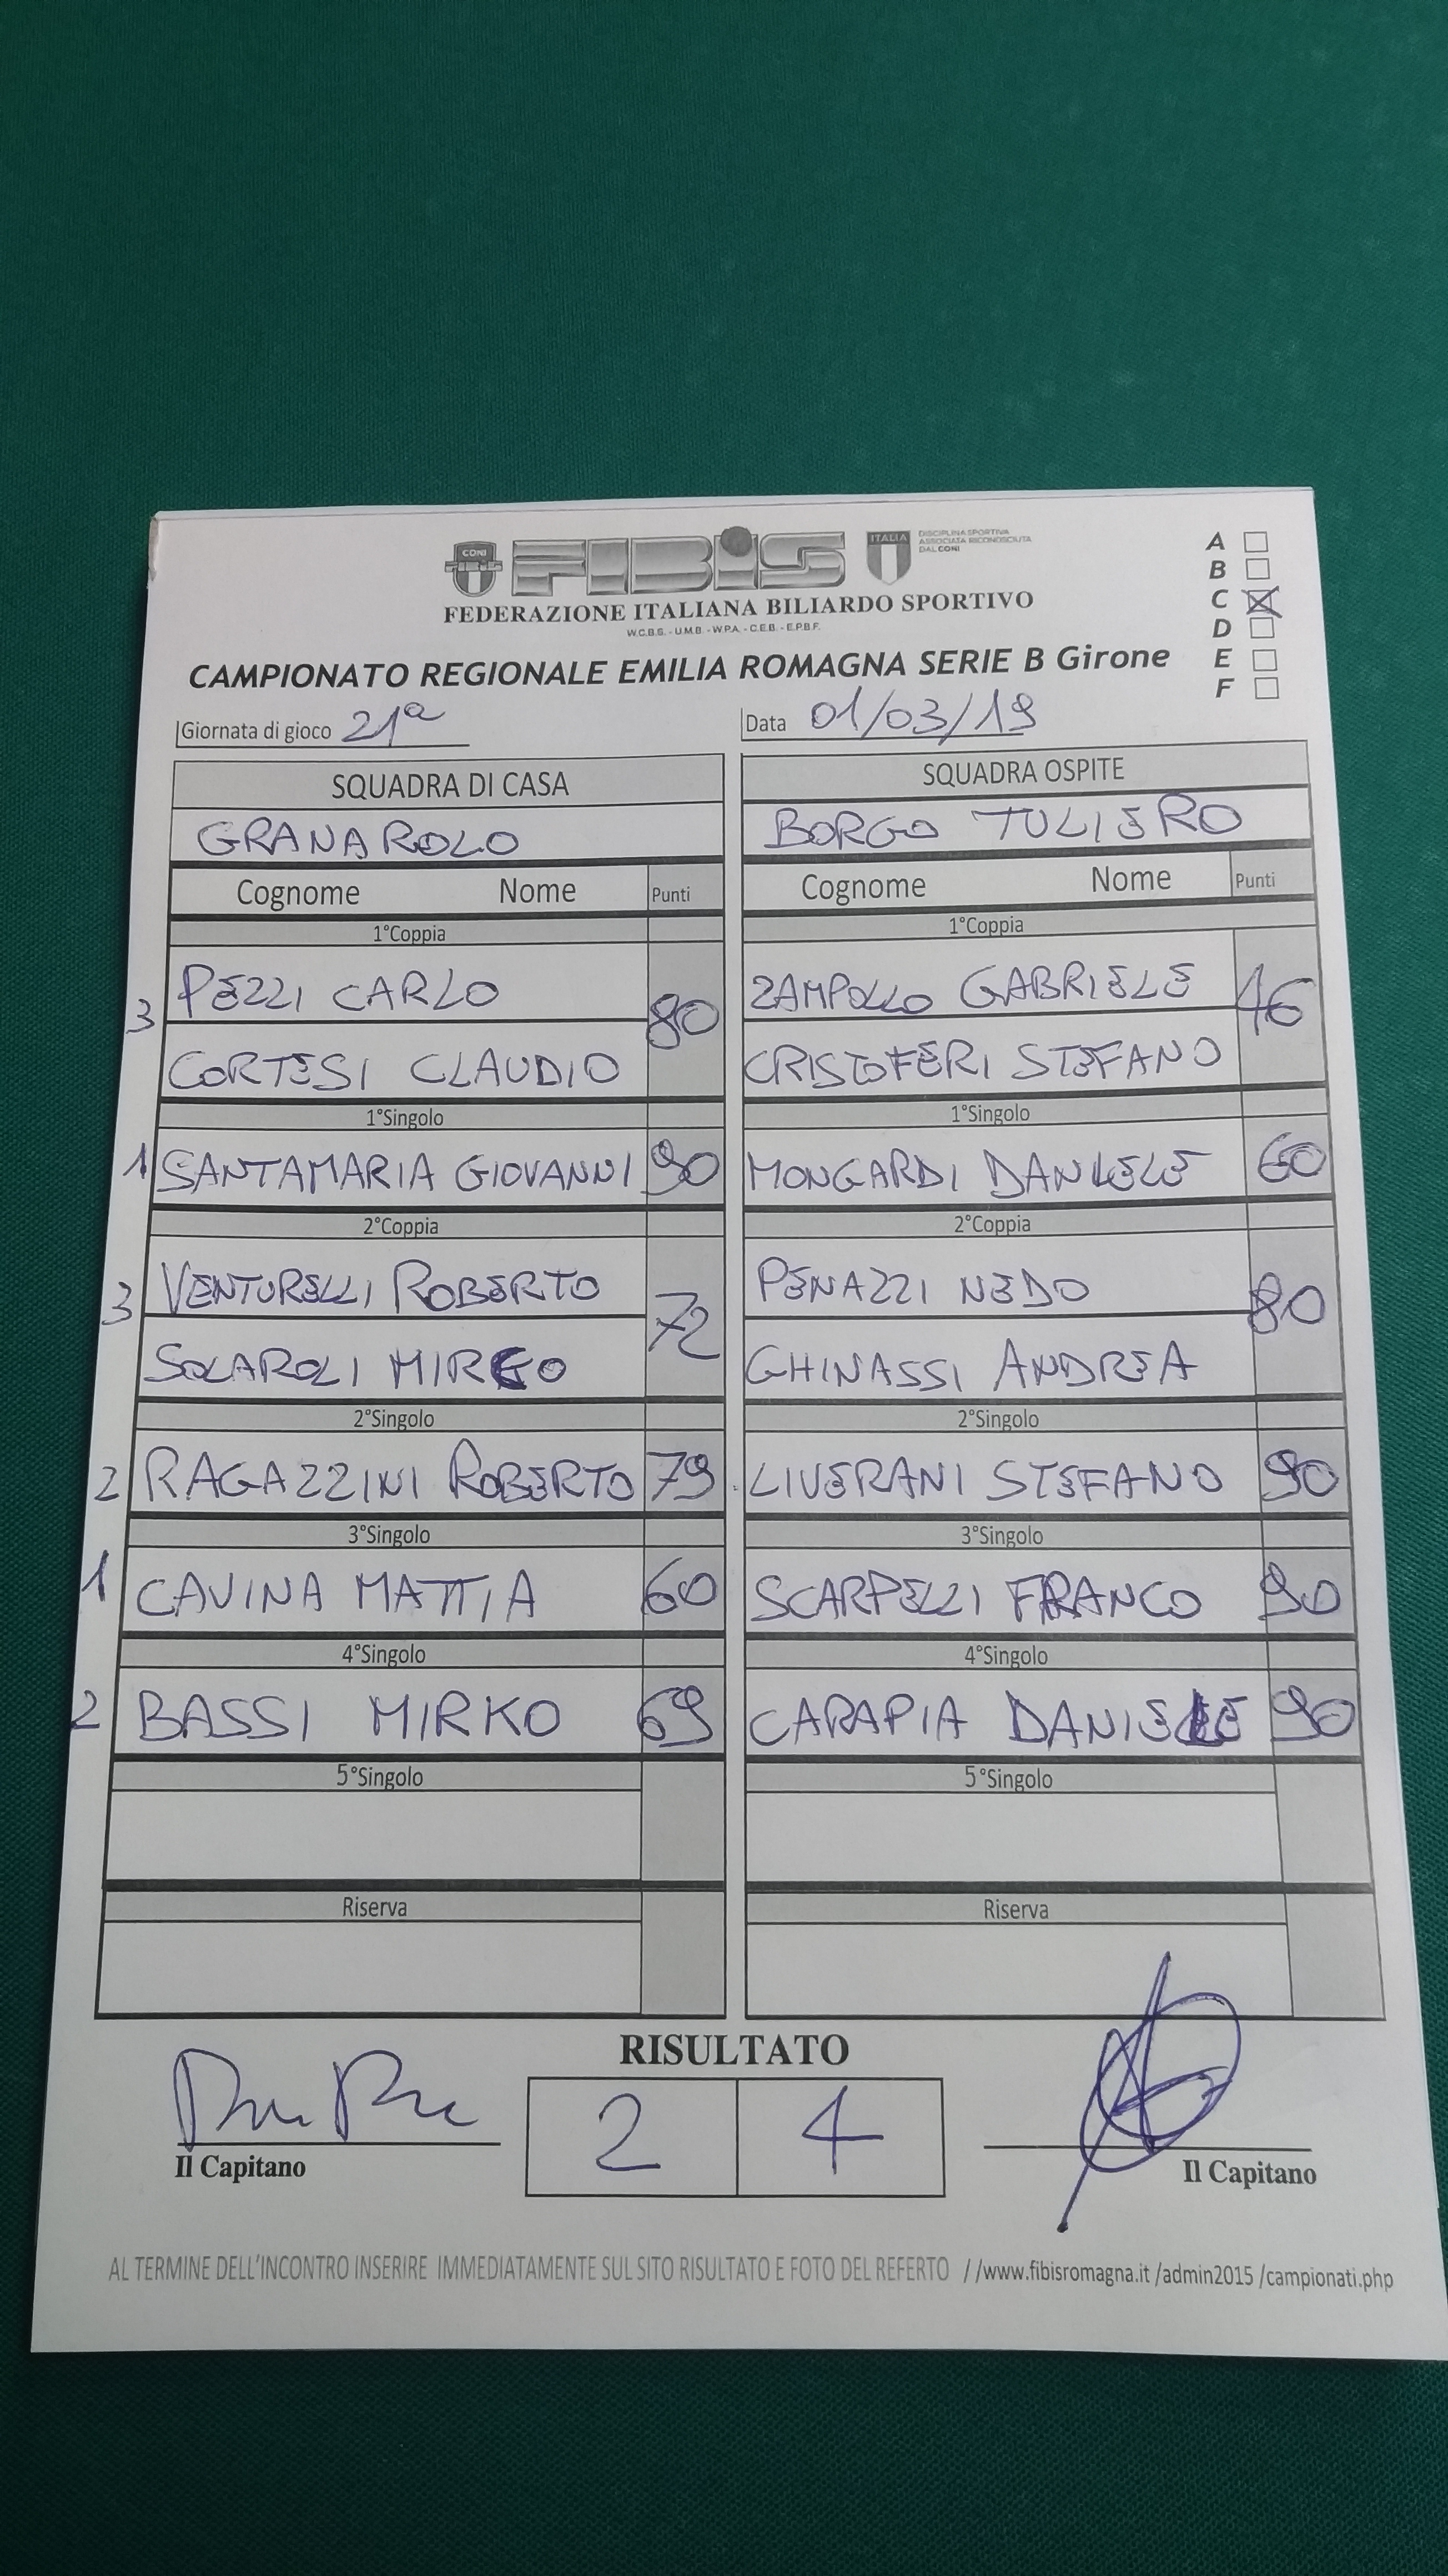 CONI
FIBIS
ITALIA
DISCIPLINA SPORTIVA
ASSOCIATA RICONOSCIUTA
DAL CONI
FEDERAZIONE ITALIANA BILIARDO SPORTIVO
W.C.B.S. - U.M.B. - W.P.A. - C.E.B. - E.P.B.F.
CAMPIONATO REGIONALE EMILIA ROMAGNA SERIE B Girone
A
B
C
D
E
F
Giornata di gioco 21ª
Data 01/03/19
SQUADRA DI CASA SQUADRA OSPITE
GRANAROLO BORGO TULIERO
Cognome Nome Punti Cognome Nome Punti
1°Coppia 1°Coppia
3 PEZZI CARLO 80 ZAMPOLLO GABRIELE 46
CORTESI CLAUDIO CRISTOFERI STEFANO
1°Singolo 1°Singolo
1 SANTAMARIA GIOVANNI 90 MONGARDI DANIELE 60
2°Coppia 2°Coppia
3 VENTURELLI ROBERTO 72 PENAZZI NEDO 80
SOLAROLI MIRCO GHINASSI ANDREA
2°Singolo 2°Singolo
2 RAGAZZINI ROBERTO 79 LIVERANI STEFANO 90
3°Singolo 3°Singolo
1 CAVINA MATTIA 60 SCARPELLI FRANCO 90
4°Singolo 4°Singolo
2 BASSI MIRKO 69 CARAPIA DANIELE 90
5°Singolo 5°Singolo
Riserva Riserva
RISULTATO
2 4
Il Capitano Il Capitano
AL TERMINE DELL'INCONTRO INSERIRE IMMEDIATAMENTE SUL SITO RISULTATO E FOTO DEL REFERTO //www.fibisromagna.it /admin2015 /campionati.php